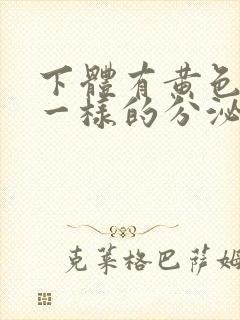 下體有黃色
一樣的分泌
克萊格巴薩姆